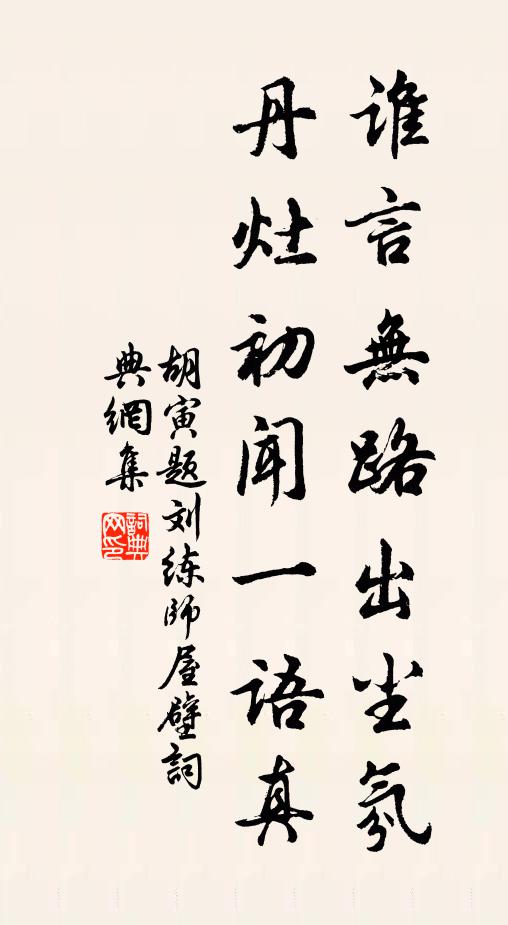 谁言無路出尘氛
丹灶初闻一语真
胡寅题刘练師屋壁詞
典網集
詞典
网印